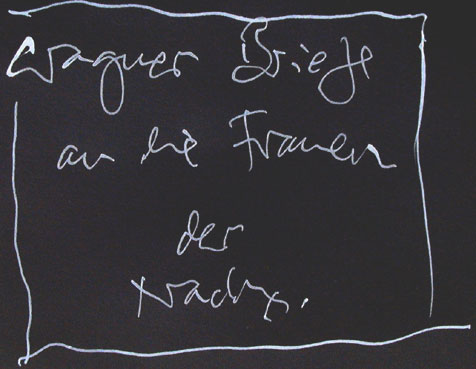 Wagner Briefe
an die Frauen
der
Nacht.